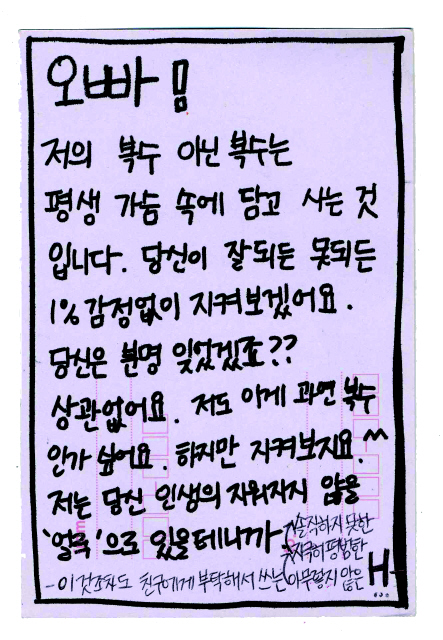 오빠!
저의 복수 아닌 복수는
평생 가슴 속에 담고 사는 것
입니다. 당신이 잘되든 못되든
1% 감정없이 지켜보겠어요.
당신은 분명 잊었겠죠??
상관없어요. 저도 이게 과연 복수
인가 싶어요. 하지만 지켜보지요.^^
저는 당신 인생의 지워지지 않을
'얼룩'으로 있을테니까-
솔직하지 못한
지극히 평범한
-이것조차도 친구에게 부탁해서 쓰는 아무렇지 않은 H-